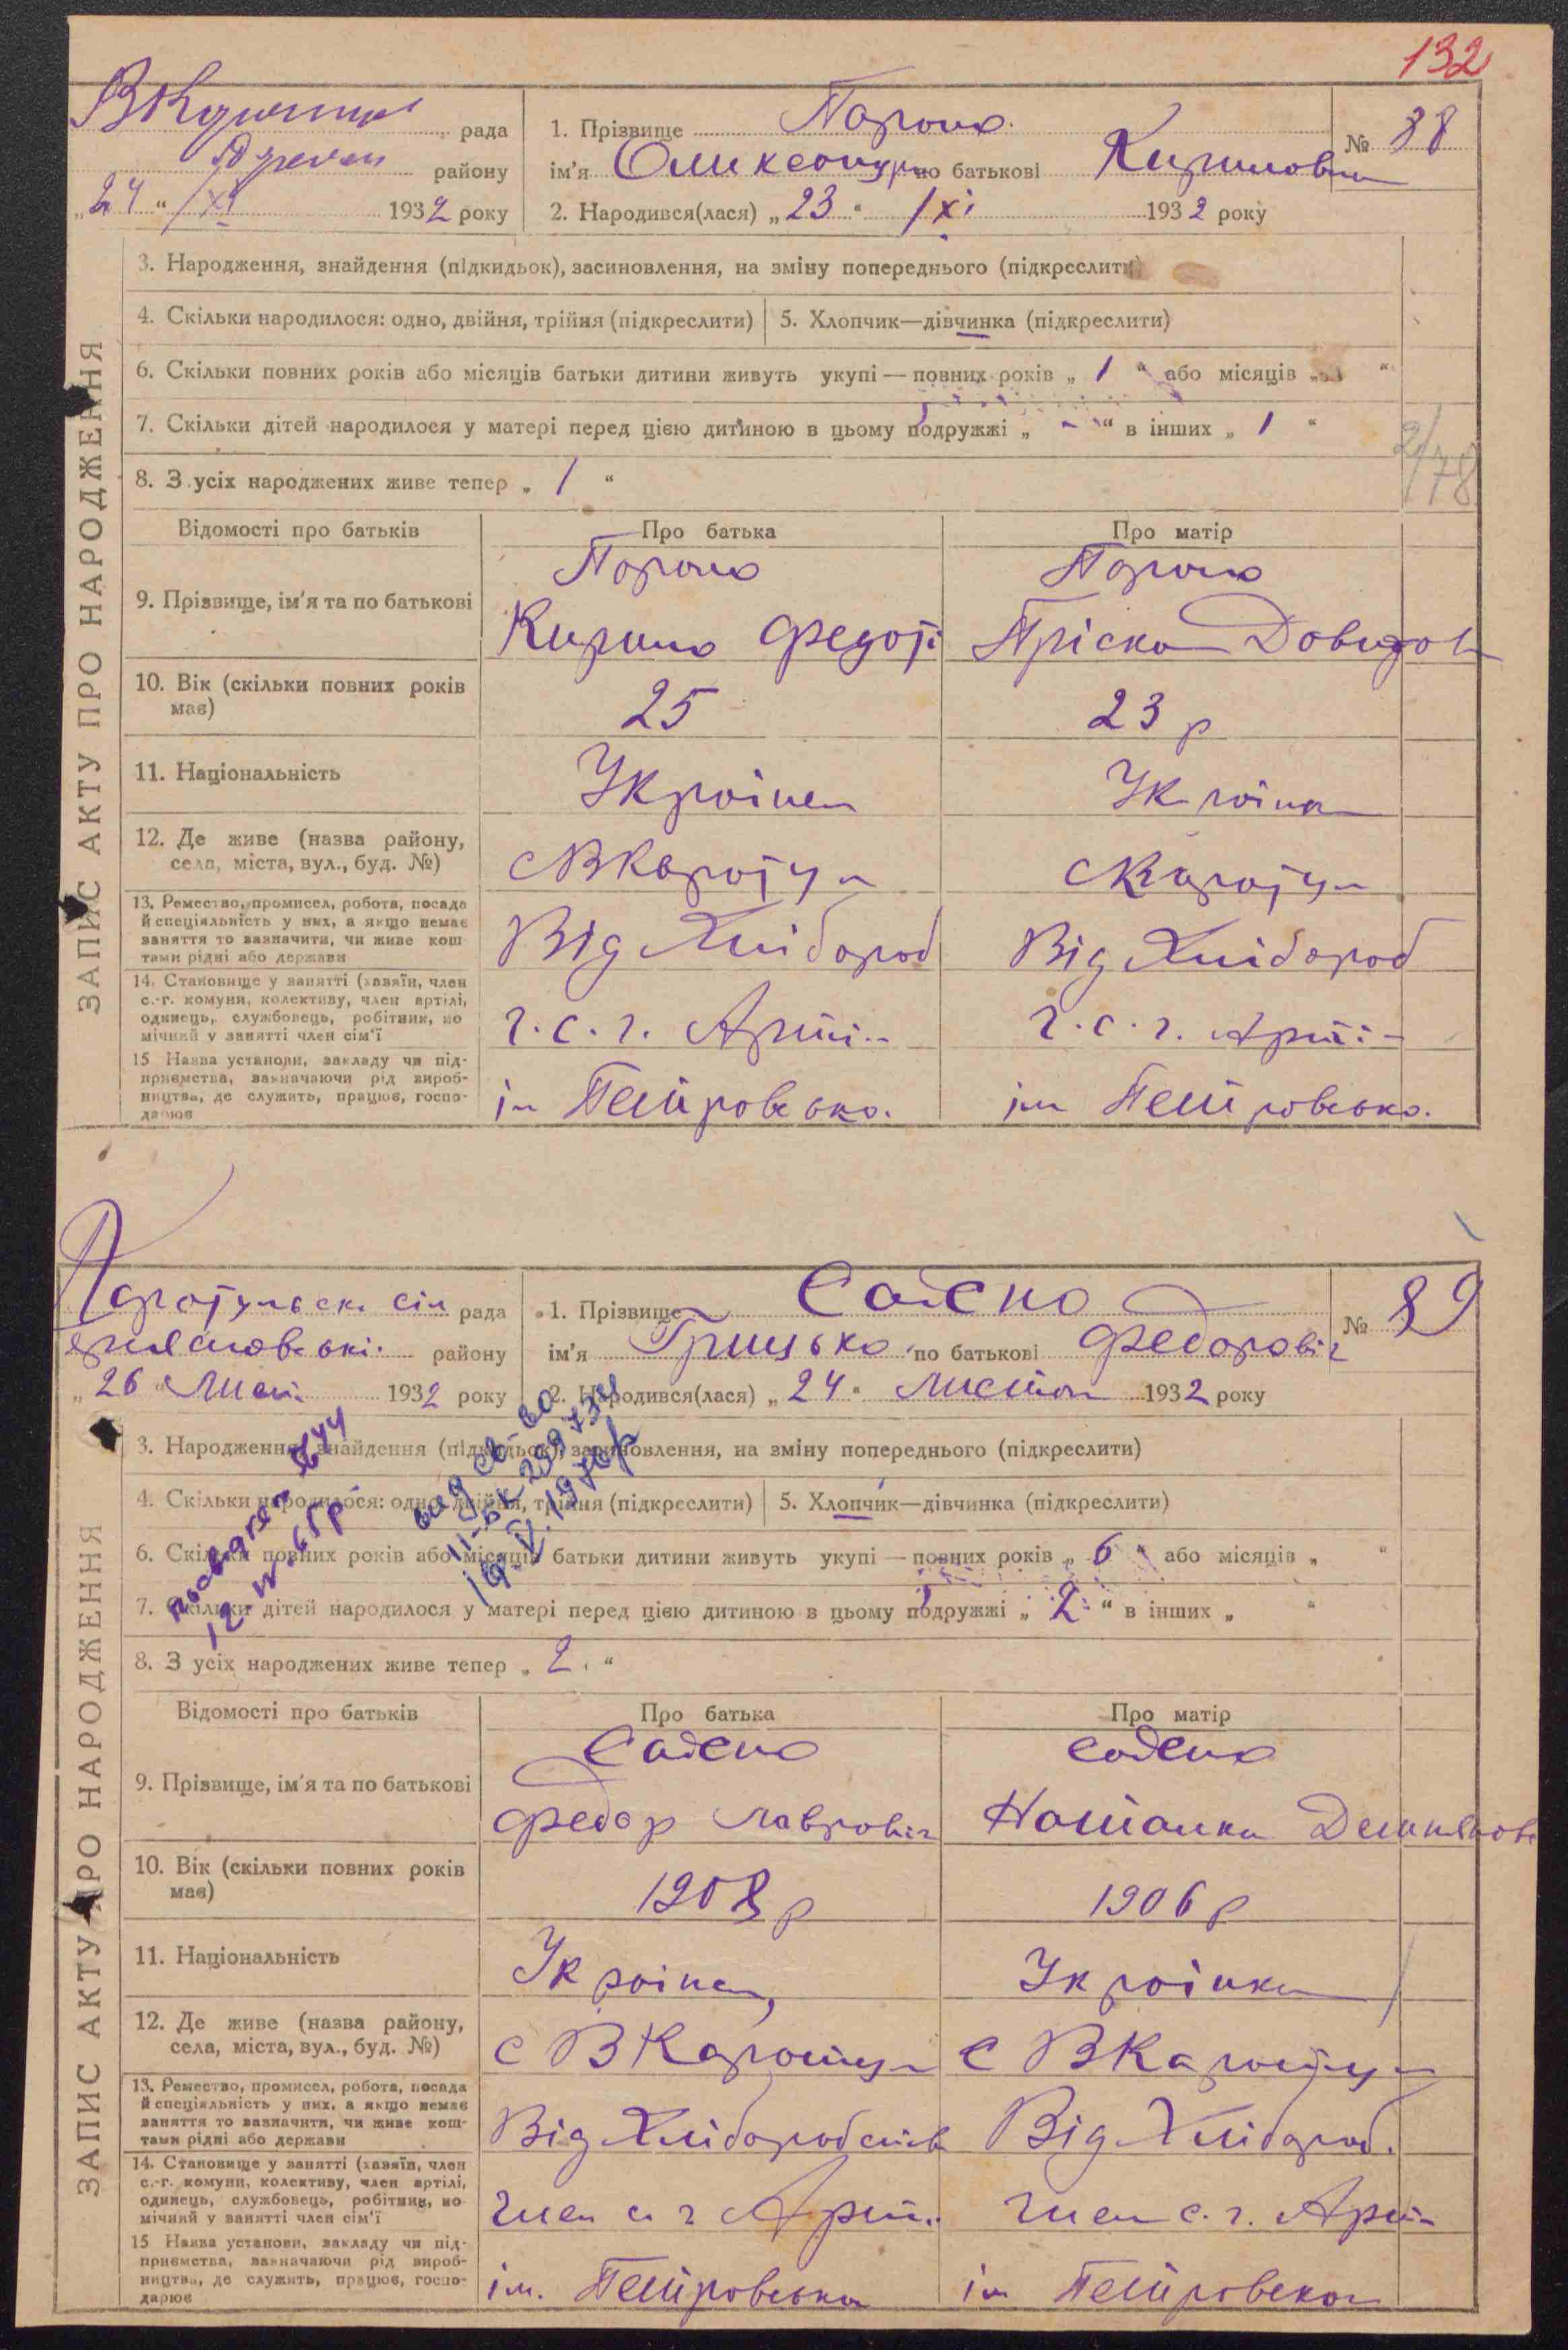 132
рада
1. Прізвище
№ 88
району
ім'я Олександра по батькові Кириловна
„24“ /XI 1932 року
2. Народився(лася) „23“ /XI 1932 року
3. Народження, знайдення (підкидьок), засиновлення, на зміну попереднього (підкреслити)
4. Скільки народилося: одно, двійня, трійня (підкреслити)
5. Хлопчик—дівчинка (підкреслити)
6. Скільки повних років або місяців батьки дитини живуть укупі — повних років „ 1 “ або місяців „ “
7. Скільки дітей народилося у матері перед цією дитиною в цьому подружжі „ - “ в інших „ 1 “
8. З усіх народжених живе тепер „ 1 “
2/78
Відомості про батьків
Про батька
Про матір
9. Прізвище, ім'я та по батькові
Кирило Федот.
Пріска Довидов
10. Вік (скільки повних років
має)
25
23 р
11. Національність
Українец
Українк
12. Де живе (назва району,
села, міста, вул., буд. №)
с В Каратул
с Каратул
13. Ремество, промисел, робота, посада
й спеціяльність у них, а якщо немає
заняття то зазначити, чи живе кош
тами рідні або держави
Від Хлібороб
Від Хлібороб
14. Становище у занятті (хазяїн, член
с.-г. комуни, колективу, член артілі,
одинець, службовець, робітник, по
мічний у занятті член сім'ї
ч.с.г. Арті
ч.с.г. Арті
15 Назва установи, закладу чи під-
приємства, зазначаючи рід вироб-
ництва, де служить, працює, госпо-
дарює
ім Петровсько.
ім Петровсько.
ЗАПИС АКТУ ПРО НАРОДЖЕННЯ
Каратульск. сіл рада
1. Прізвище
№ 89
району
ім'я Грицько по батькові Федоровіч
„26“ Лист. 1932 року
2. Народився(лася) „24“ Листоп 1932 року
3. Народження, знайдення (підкидьок), засиновлення, на зміну попереднього (підкреслити)
4. Скільки народилося: одно, двійня, трійня (підкреслити)
5. Хлопчик—дівчинка (підкреслити)
6. Скільки повних років або місяців батьки дитини живуть укупі — повних років „ 6 “ або місяців „ “
7. Скільки дітей народилося у матері перед цією дитиною в цьому подружжі „ 2 “ в інших „ “
8. З усіх народжених живе тепер „ 2 “
Відомості про батьків
Про батька
Про матір
9. Прізвище, ім'я та по батькові
Федор Лавровіч
Наталка Демьянов
10. Вік (скільки повних років
має)
1908 р
1906 р
11. Національність
Українец
Українка
12. Де живе (назва району,
села, міста, вул., буд. №)
с В Каратул
с В Каратул
13. Ремество, промисел, робота, посада
й спеціяльність у них, а якщо немає
заняття то зазначити, чи живе кош-
тами рідні або держави
Від Хліборобств
Від Хлібороб.
14. Становище у занятті (хазяїн, член
с.-г. комуни, колективу, член артілі,
одинець, службовець, робітник, по
мічний у занятті член сім'ї
Член с г Арт.
Член с.г. Арт
15 Назва установи, закладу чи під-
приємства, зазначаючи рід вироб-
ництва, де служить, працює, госпо-
дарює
ім. Петровська
ім Петровська
ЗАПИС АКТУ ПРО НАРОДЖЕННЯ